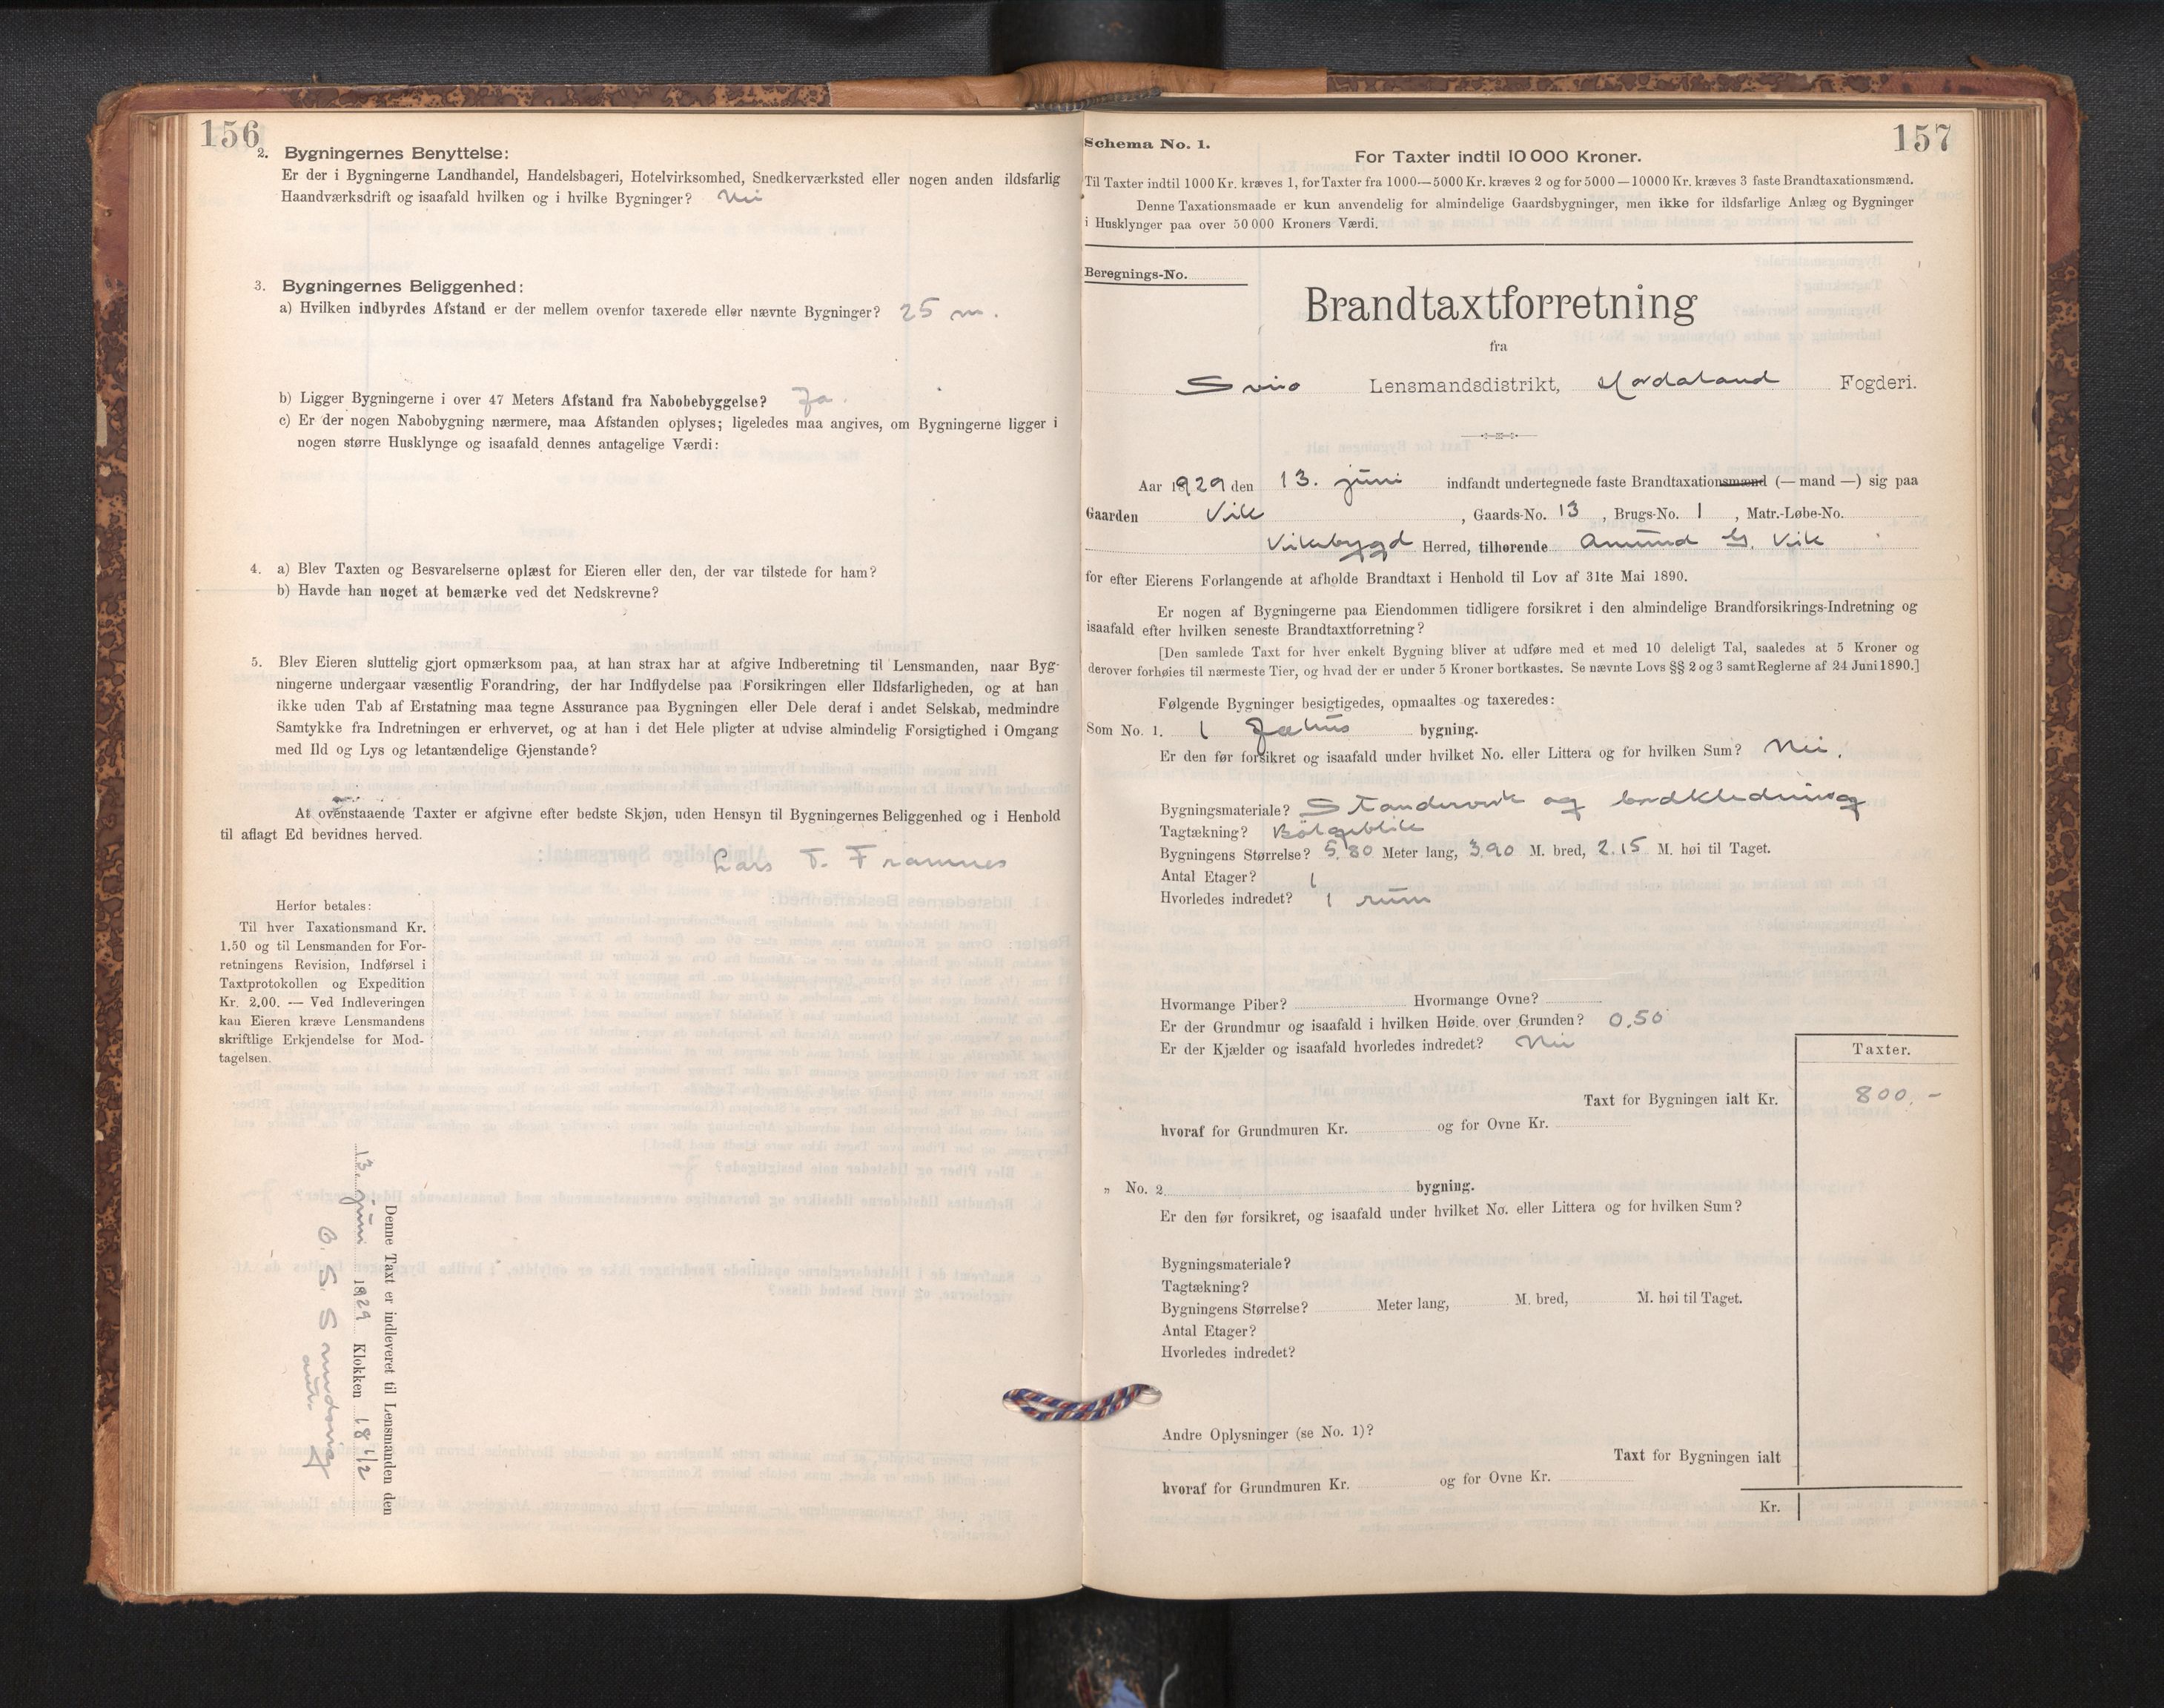 156
2. Bygningernes Benyttelse:
Er der i Bygningerne Landhandel, Handelsbageri, Hotelvirksomhed, Snedkerværksted eller nogen anden ildsfarlig
Haandværksdrift og isaafald hvilken og i hvilke Bygninger? Nei
3. Bygningernes Beliggenhed:
a) Hvilken indbyrdes Afstand er der mellem ovenfor taxerede eller nævnte Bygninger? 25 m.
b) Ligger Bygningerne i over 47 Meters Afstand fra Nabobebyggelse? Ja.
c) Er der nogen Nabobygning nærmere, maa Afstanden oplyses; ligeledes maa angives, om Bygningerne ligger i
nogen større Husklynge og isaafald dennes antagelige Værdi:
4. a) Blev Taxten og Besvarelserne oplæst for Eieren eller den, der var tilstede for ham?
b) Havde han noget at bemærke ved det Nedskrevne?
5. Blev Eieren sluttelig gjort opmærksom paa, at han strax har at afgive Indberetning til Lensmanden, naar Byg-
ningerne undergaar væsentlig Forandring, der har Indflydelse paa Forsikringen eller Ildsfarligheden, og at han
ikke uden Tab af Erstatning maa tegne Assurance paa Bygningen eller Dele deraf i andet Selskab, medmindre
Samtykke fra Indretningen er erhvervet, og at han i det Hele pligter at udvise almindelig Forsigtighed i Omgang
med Ild og Lys og letantændelige Gjenstande?
At ovenstaaende Taxter er afgivne efter bedste Skjøn, uden Hensyn til Bygningernes Beliggenhed og i Henhold
til aflagt Ed bevidnes herved.
Lars T. Framnes
Herfor betales:
Til hver Taxationsmand Kr.
1.50 og til Lensmanden for For-
retningens Revision, Indførsel i
Taxtprotokollen og Expedition
Kr. 2,00. — Ved Indleveringen
kan Eieren kræve Lensmandens
skriftlige Erkjendelse for Mod-
tagelsen.
Denne Taxt er indleveret til Lensmanden den
13. juni 1929 Klokken 18 1/2
O. S. Sandvig
157
Schema No. 1.
For Taxter indtil 10 000 Kroner.
Til Taxter indtil 1000 Kr. kræves 1, for Taxter fra 1000—5000 Kr. kræves 2 og for 5000—10000 Kr. kræves 3 faste Brandtaxationsmænd.
Denne Taxationsmaade er kun anvendelig for almindelige Gaardsbygninger, men ikke for ildsfarlige Anlæg og Bygninger
i Husklynger paa over 50 000 Kroners Værdi.
Beregnings-No.
Brandtaxtforretning
fra
Sveio Lensmandsdistrikt, Hordaland Fogderi.
Aar 1929 den 13. juni indfandt undertegnede faste Brandtaxationsmænd (— mand —) sig paa
Gaarden Vik, Gaards-No. 13, Brugs-No. 1, Matr.-Løbe-No.
Vikebygd Herred, tilhørende Amund G. Vik
for efter Eierens Forlangende at afholde Brandtaxt i Henhold til Lov af 31te Mai 1890.
Er nogen af Bygningerne paa Eiendommen tidligere forsikret i den almindelige Brandforsikrings-Indretning og
isaafald efter hvilken seneste Brandtaxtforretning?
[Den samlede Taxt for hver enkelt Bygning bliver at udføre med et med 10 deleligt Tal, saaledes at 5 Kroner og
derover forhøies til nærmeste Tier, og hvad der er under 5 Kroner bortkastes. Se nævnte Lovs §§ 2 og 3 samt Reglerne af 24 Juni 1890.]
Følgende Bygninger besigtigedes, opmaaltes og taxeredes:
Som No. 1. 1 bygning.
Er den før forsikret og isaafald under hvilket No. eller Littera og for hvilken Sum? Nei.
Bygningsmateriale? Standerverk og bordkledning
Tagtækning? Bølgeblik
Bygningens Størrelse? 5,80 Meter lang, 3,90 M. bred, 2.15 M. høi til Taget.
Antal Etager? 1
Hvorledes indredet? 1 rum
Hvormange Piber? Hvormange Ovne?
Er der Grundmur og isaafald i hvilken Høide over Grunden? 0,50
Er der Kjælder og isaafald hvorledes indredet? Nei
Taxter.
Taxt for Bygningen ialt Kr. 800.-
hvoraf for Grundmuren Kr. og for Ovne Kr.
„ No. 2 bygning.
Er den før forsikret, og isaafald under hvilket No. eller Littera og for hvilken Sum?
Bygningsmateriale?
Tagtækning?
Bygningens Størrelse? Meter lang, M. bred, M. høi til Taget.
Antal Etager?
Hvorledes indredet?
Andre Oplysninger (se No. 1)?
Taxt for Bygningen ialt
hvoraf for Grundmuren Kr. og for Ovne Kr.
Kr.